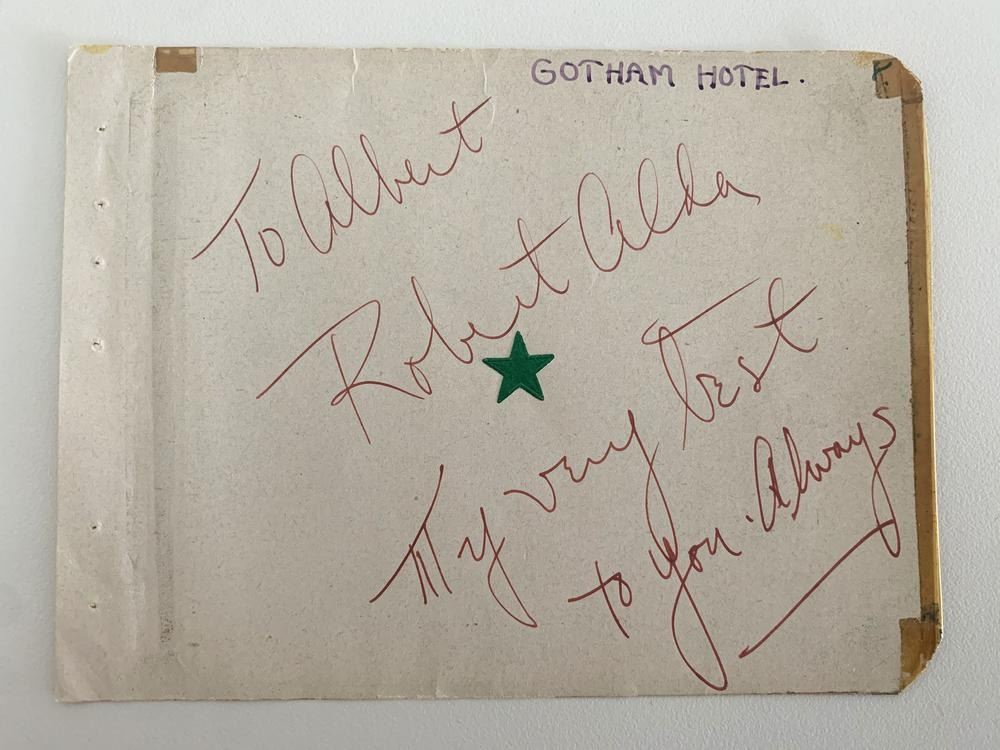 GOTHAM HOTEL.
To Albert
Robert Alda
My very best
to you. Always